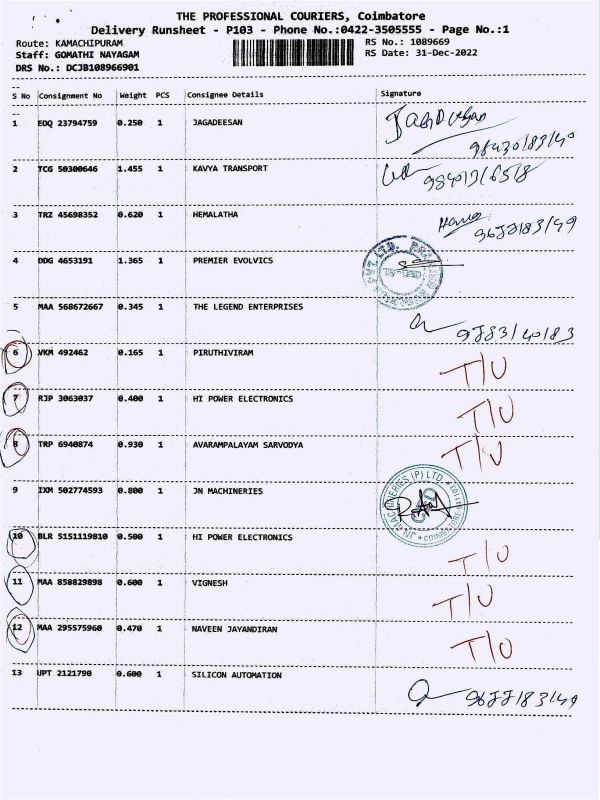 THE PROFESSIONAL COURIERS, Coimbatore
Delivery Runsheet - P103 - Phone No.:0422-3505555 - Page No.:1
Route: KAMACHIPURAM RS No.: 1089669
Staff: GOMATHI NAYAGAM RS Date: 31-Dec-2022
DRS No.: DCJB108966901
S No Consignment No Weight PCS Consignee Details Signature
1 EDQ 23794759 0.250 1 JAGADEESAN
2 TCG 50300646 1.455 1 KAVYA TRANSPORT
3 TRZ 45698352 0.620 1 HEMALATHA
4 DDG 4653191 1.365 1 PREMIER EVOLVICS
5 MAA 568672667 0.345 1 THE LEGEND ENTERPRISES
6 VKM 492462 0.165 1 PIRUTHIVIRAM T/U
7 RJP 3063037 0.400 1 HI POWER ELECTRONICS T/U
8 TRP 6940874 0.930 1 AVARAMPALAYAM SARVODYA T/U
9 IXM 502774593 0.800 1 JN MACHINERIES JN MACHINERIES (P) LTD. COIMBATORE
10 BLR 5151119810 0.500 1 HI POWER ELECTRONICS T/U
11 MAA 858829898 0.600 1 VIGNESH T/U
12 MAA 295575960 0.470 1 NAVEEN JAYANDIRAN T/U
13 UPT 2121790 0.600 1 SILICON AUTOMATION